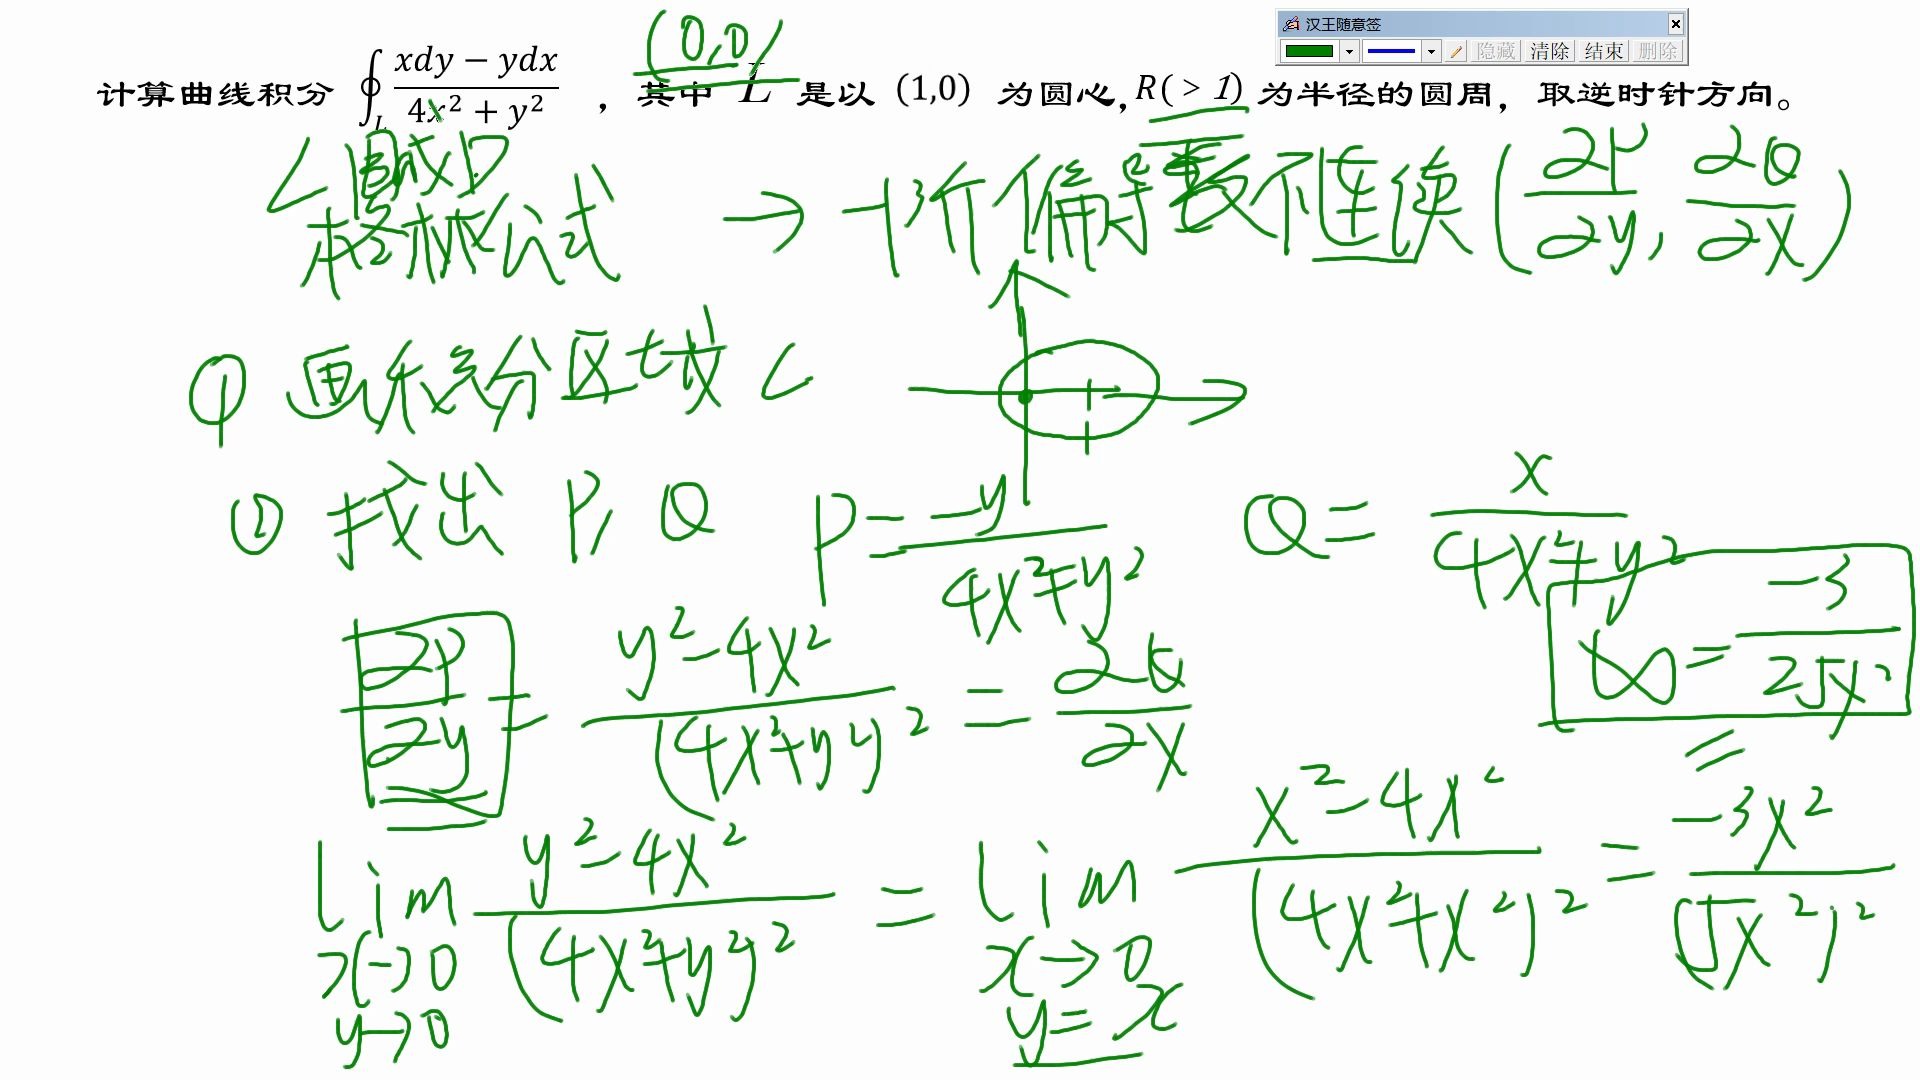 汉王随意签
隐藏 清除 结束 删除
(0,0)
计算曲线积分 ∮_L (xdy − ydx)/(4x² + y²) ，其中 L 是以 (1,0) 为圆心, R(> 1) 为半径的圆周，取逆时针方向。
L 围成D
格林公式 → 一阶偏导数不连续 (∂P/∂y, ∂Q/∂x)
① 画积分区域 L
② 找出 P, Q P = −y/(4x²+y²) Q = x/(4x²+y²)
∂P/∂y = (y²−4x²)/(4x²+y²)² = ∂Q/∂x
∞ = −3/(25x²)
=
lim x→0 y→0 (y²−4x²)/(4x²+y²)² = lim x→0 y=x (x²−4x²)/(4x²+x²)² = −3x²/(5x²)²